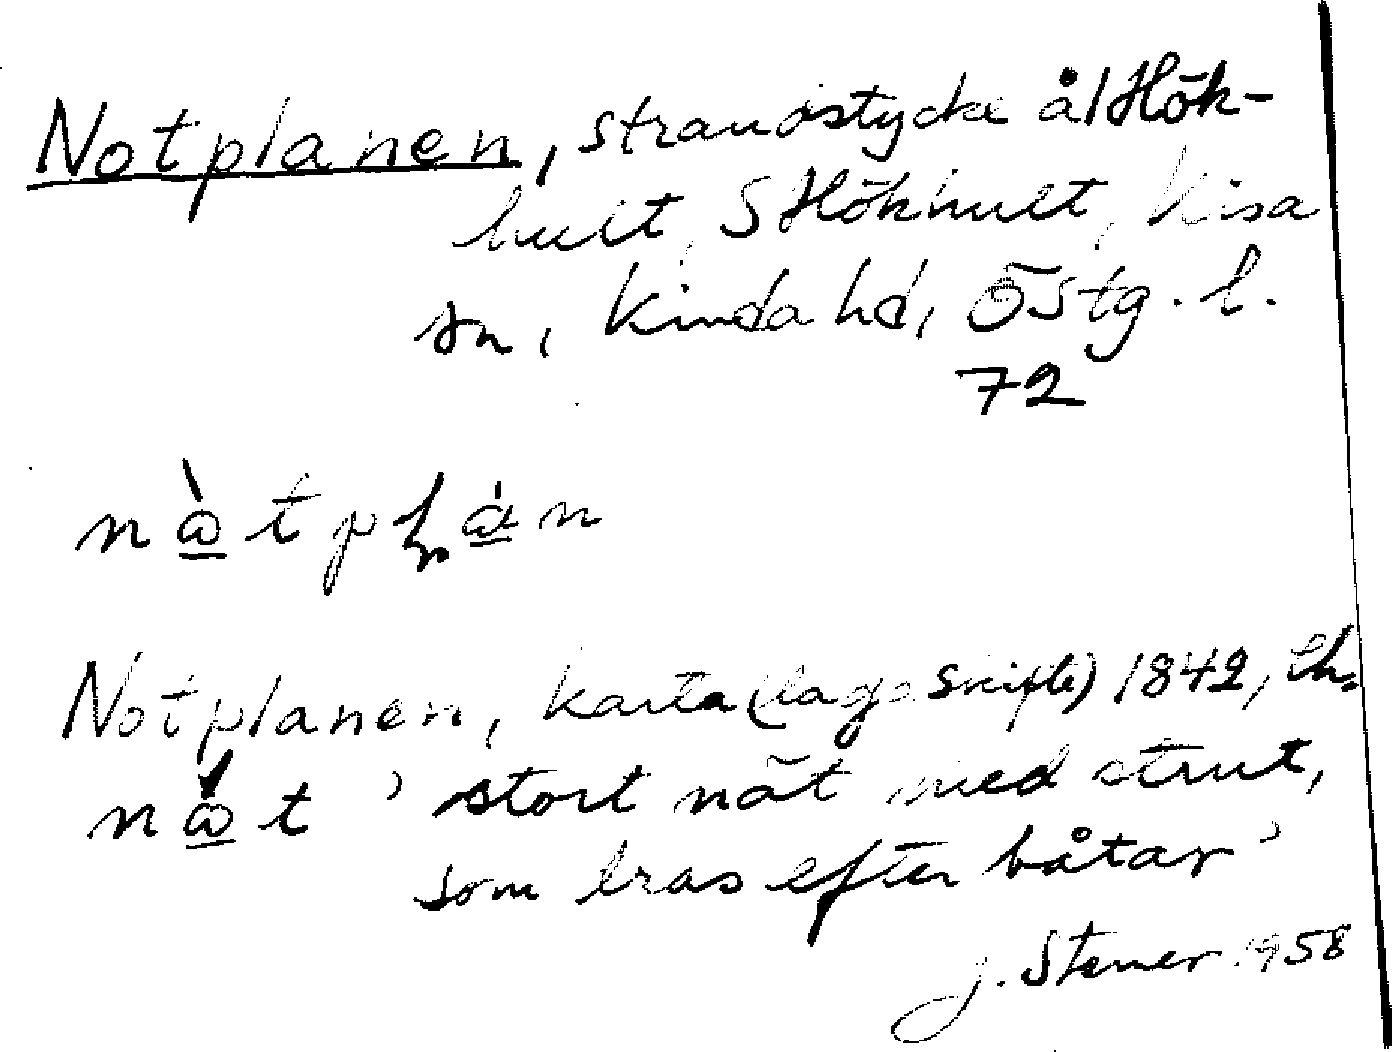 Notplanen, strandstycke å Hök-
hult, S Hökhult, Kisa
sn, Kinda hd, Östg. l.
72
nò̱tplà̱n
Notplanen, karta (laga skifte) 1842,
nò̱t 'stort nät med strut,
som dras efter båtar'
J. Stener 1958